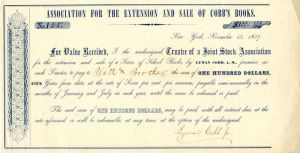 ASSOCIATION FOR THE EXTENSION AND SALE OF COBB'S BOOKS.
No. 135.
New York, November 15, 18
For Value Received, I, the undersigned, Trustee of a Joint Stock Association
for the extension and sale of a Series of School Books, by LYMAN COBB, A. M., promise, as
such Trustee, to pay to the sum of ONE HUNDRED DOLLARS,
FIVE Years from date, at the rate of Seven per cent. per annum, payable semi-annually in the
months of January and July in each year, until the same be redeemed or paid.
The said sum of ONE HUNDRED DOLLARS, may be paid, with all interest due at the
rate aforesaid, or will be redeemable, at any time, at the option of the undersigned.
Lyman Cobb Jr.